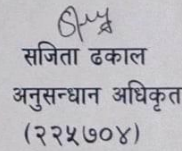 सजिता ढकाल
अनुसन्धान अधिकृत
(२२५७०४)